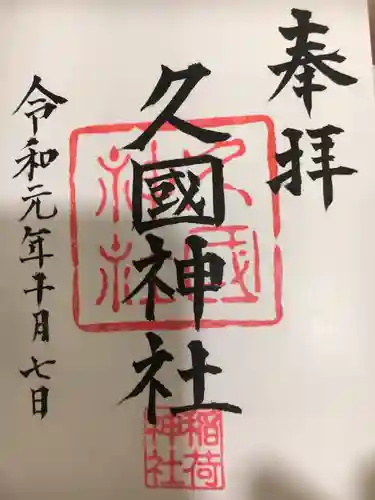 奉拝
久國神社
令和元年十月七日
久國神社
稲荷神社